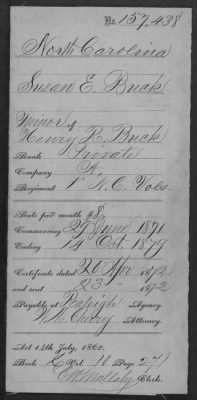 No. 157,438
North Carolina
Susan E. Buck
Minor of
Henry R. Buck
Rank Private
Company A
Regiment 1st N.C. Vols
Rate per month $8
Commencing 29 June 1871
Ending 14 Oct. 1879
Certificate dated 20 Apr 1872
and sent 23 " 1872
Payable at Raleigh Agency.
Attorney.
Act 14th July, 1862.
Book Vol. Page 271
Clerk.